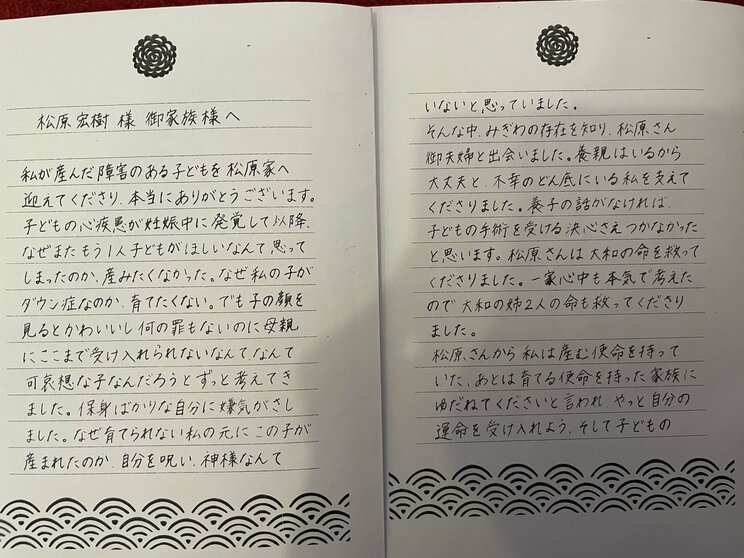 松原宏樹様 御家族様へ
私が産んだ障害のある子どもを松原家へ
迎えてくださり、本当にありがとうございます。
子どもの心疾患が妊娠中に発覚して以降、
なぜまたもう1人子どもがほしいなんて思って
しまったのか、産みたくなかった。なぜ私の子が
ダウン症なのか、育てたくない。でも子の顔を
見るとかわいいし何の罪もないのに母親
にここまで受け入れられないなんて、なんて
可哀想な子なんだろうとずっと考えてき
ました。保身ばかりな自分に嫌気がさし
ました。なぜ育てられない私の元にこの子が
産まれたのか、自分を呪い、神様なんて
いないと思っていました。
そんな中、みぎわの存在を知り、松原さん
御夫婦と出会いました。養親はいるから
大丈夫と、不幸のどん底にいる私を支えて
くださりました。養子の話がなければ、
子どもの手術を受ける決心さえつかなかった
と思います。松原さんは大和の命を救って
くださりました。一家心中も本気で考えた
ので大和の姉2人の命も救ってくださり
ました。
松原さんから私は産む使命を持って
いた、あとは育てる使命を持った家族に
ゆだねてくださいと言われ、やっと自分の
運命を受け入れよう、そして子どもの